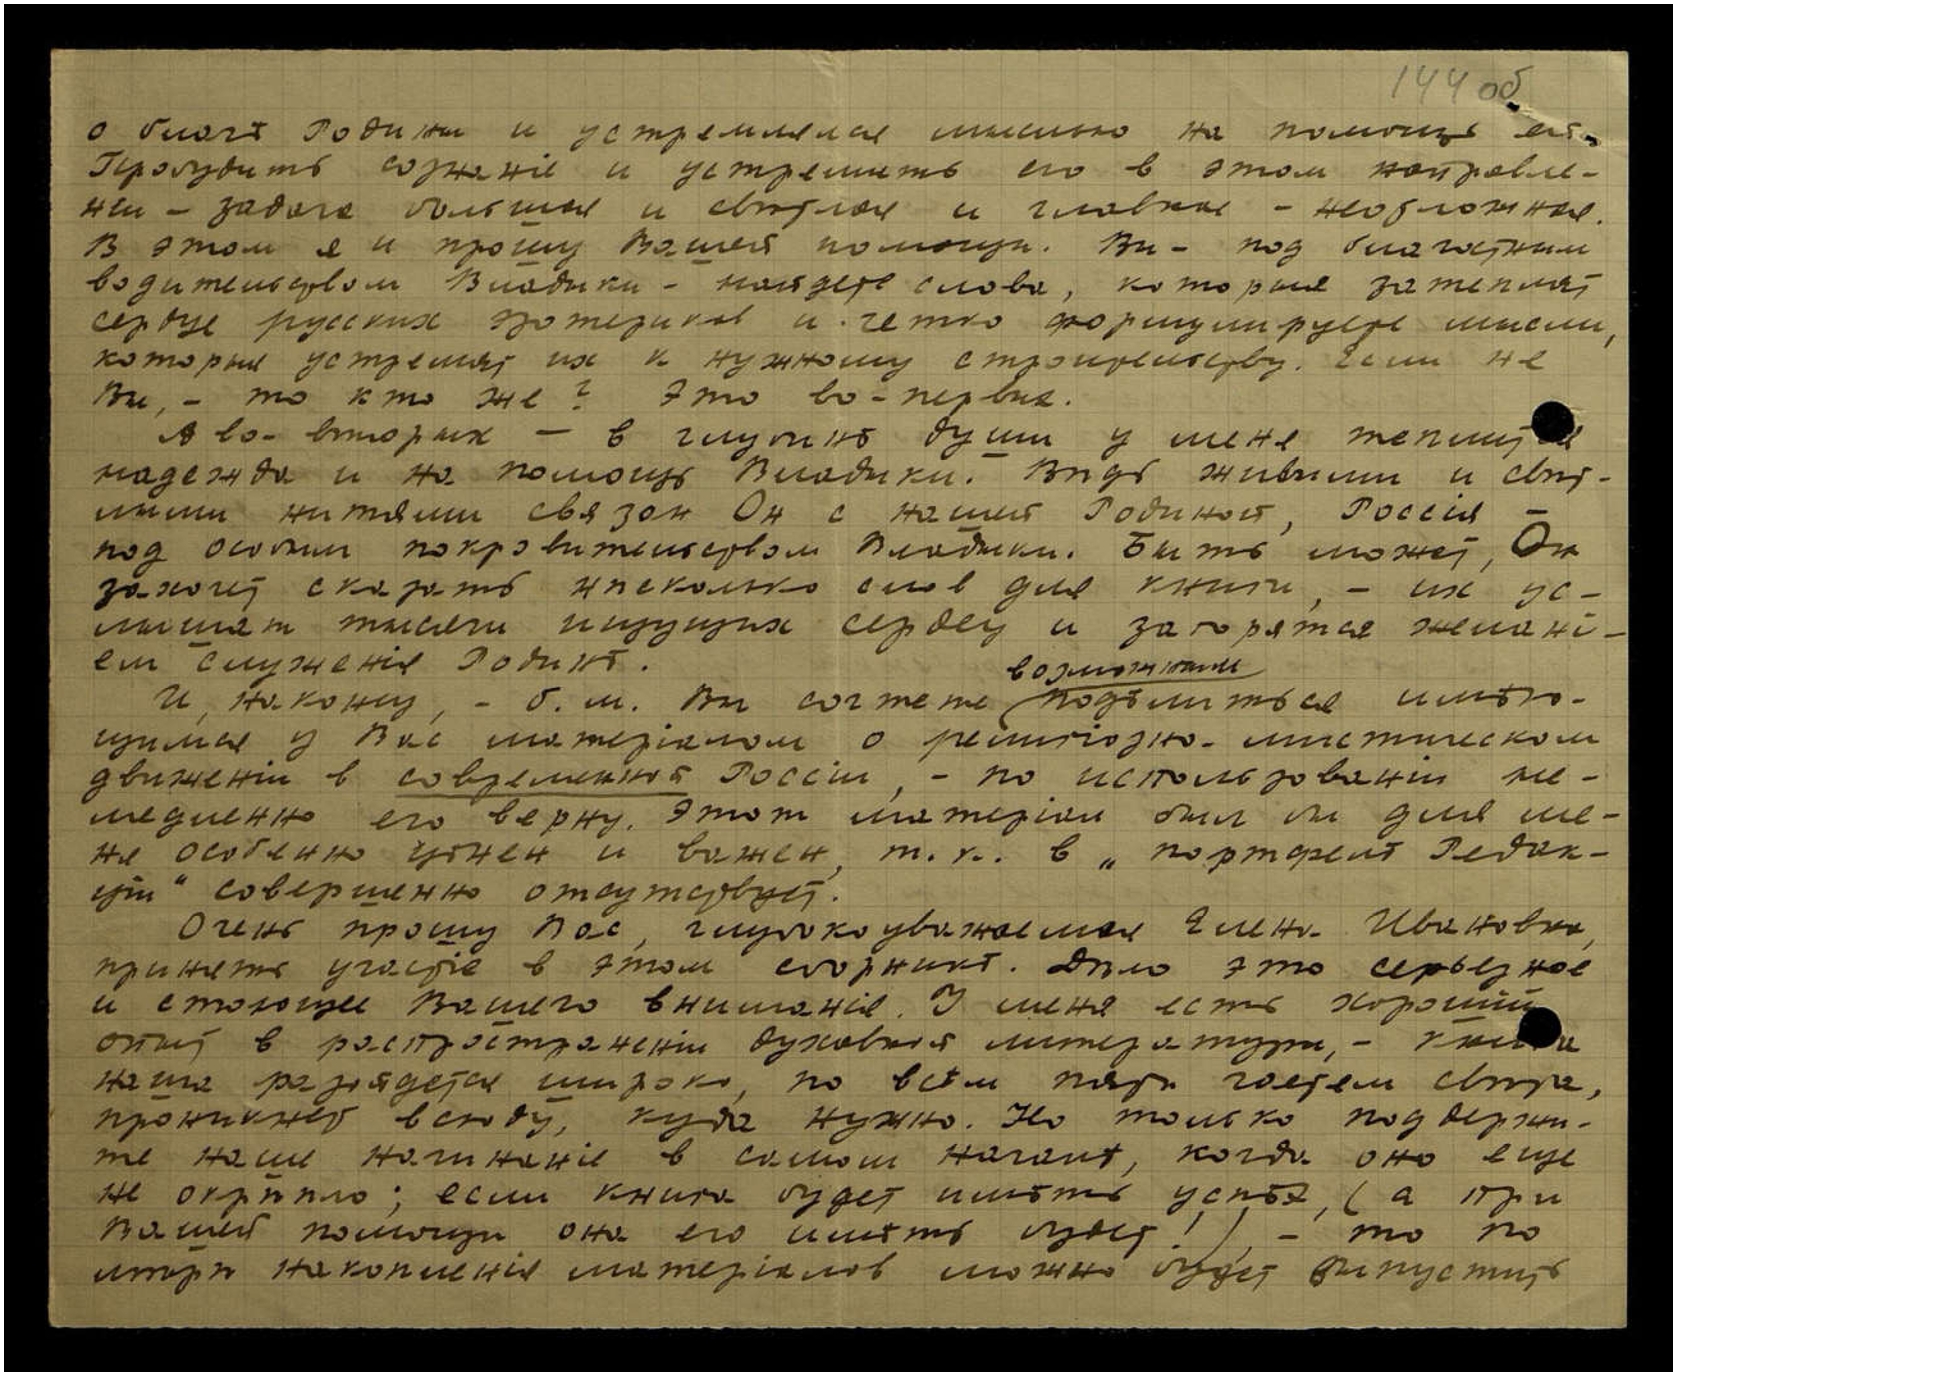 144 об
о благѣ Родины и устремлялся мыслью на помощь ей.
Пробудить сознаніе и устремить его в этом направле-
нии – задача большая и свѣтлая и главное – неотложная.
В этом я и прошу Вашей помощи. Вы – под благостным
водительством Владыки – найдете слова, которыя затеплят
сердце русских эзотериков и четко формулируете мысли,
которыя устремят их к нужному строительству. Если не
Вы, – то кто же? Это во-первых.
А во-вторых – в глубинѣ души у меня теплится
надежда и на помощь Владыки. Вѣдь живыми и свѣт-
лыми нитями связан Он с нашей Родиной, Россія –
под особым покровительством Владыки. Быть может, Он
захочет сказать нѣсколько слов для книги, – их ус-
лышат тысячи ищущих сердец и загорятся желані-
ем служенія Родинѣ.
возможным
И, наконец, – б.м. Вы сочтете подѣлиться имѣю-
щимся у Вас матеріалом о религіозно-мистическом
движеніи в современной Россіи, – по использованіи не-
медленно его верну. Этот матеріал был бы для ме-
ня особенно цѣнен и важен, т.к. в „портфелѣ Редак-
ціи“ совершенно отсутствует.
Очень прошу Вас, глубокоуважаемая Елена Ивановна,
принять участіе в этом сборникѣ. Дѣло это серьезное
и стоющее Вашего вниманія. У меня есть хорошій
опыт в распространеніи духовной литературы, – книга
наша разойдется широко, по всѣм пяти частям свѣта,
проникнет всюду, куда нужно. Но только поддержи-
те наше начинаніе в самом началѣ, когда оно еще
не окрѣпло; если книга будет имѣть успѣх, (а при
Вашей помощи она его имѣть будет!), – то по
мѣрѣ накопленія матеріалов можно будет выпустить